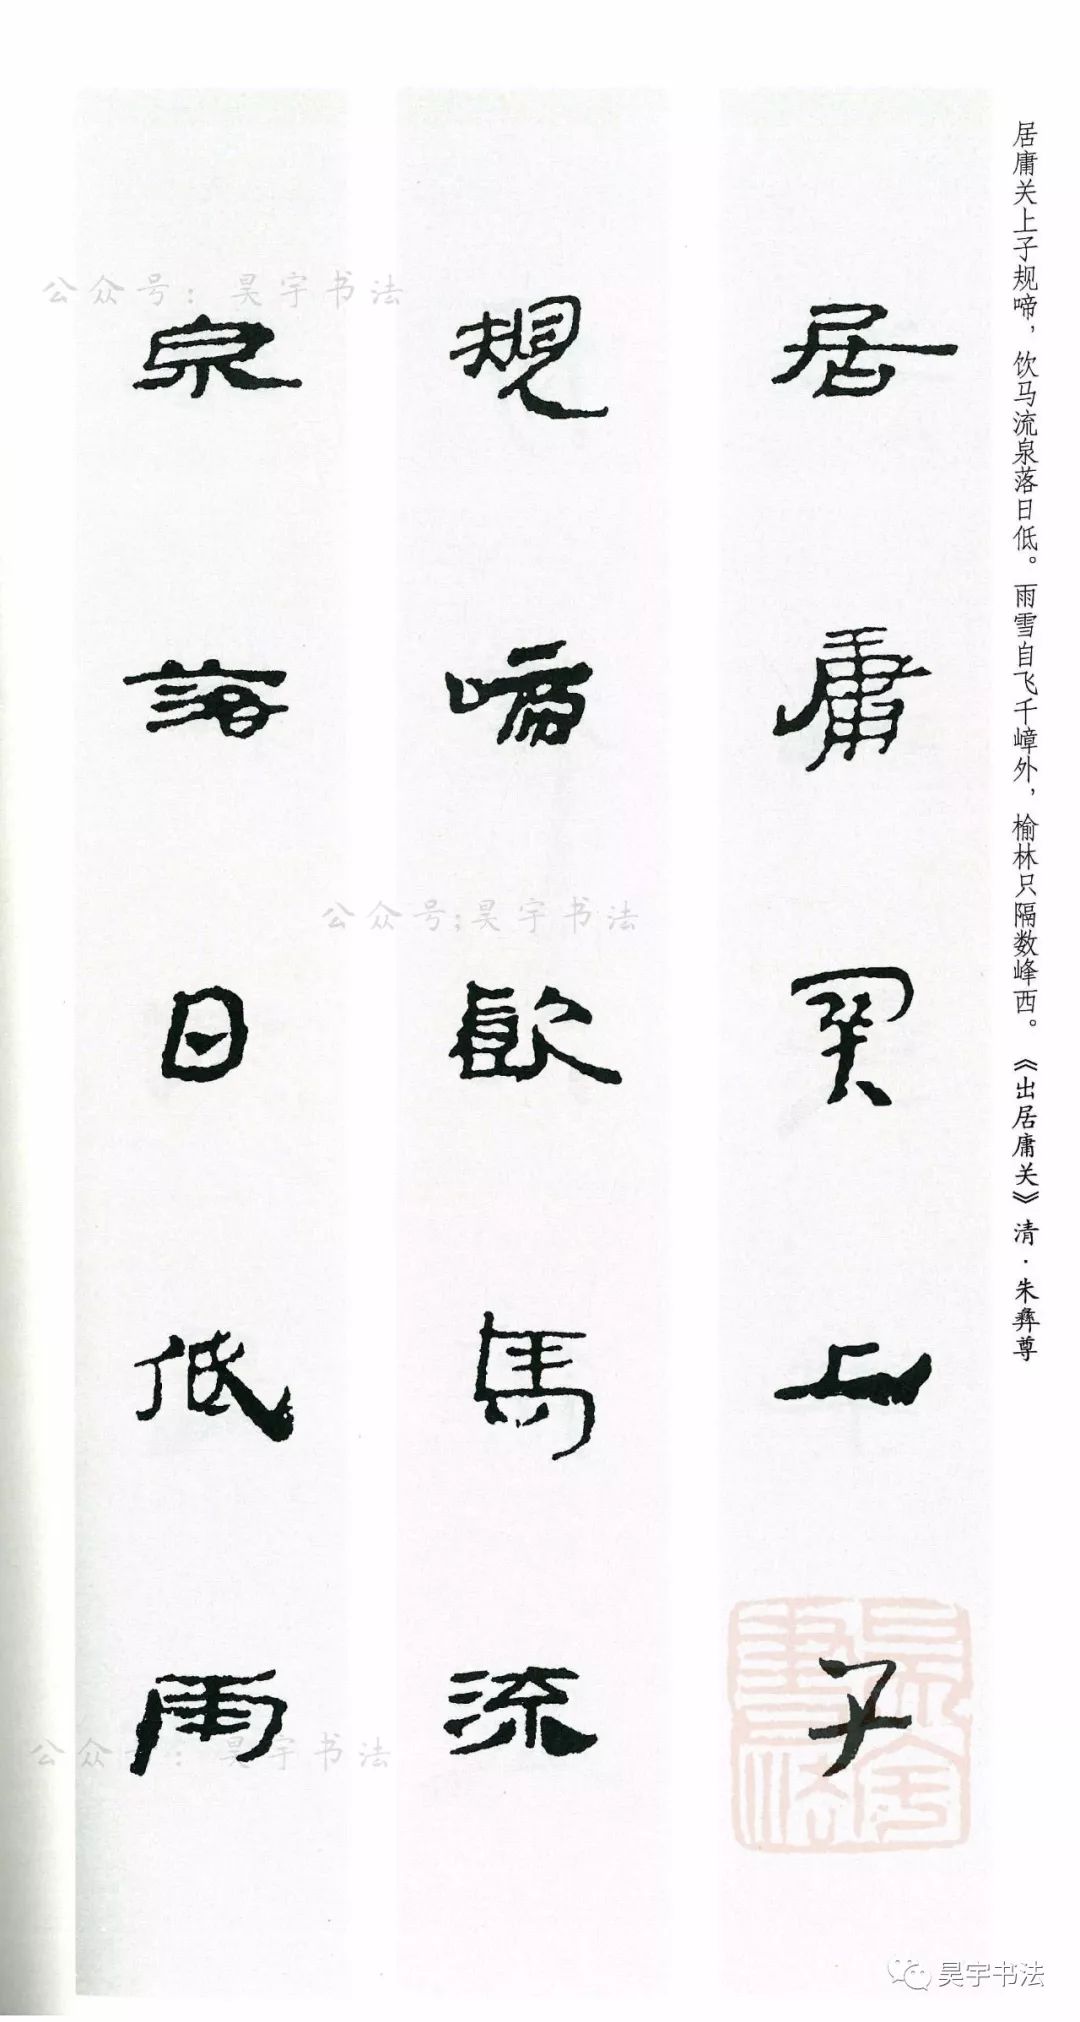 居庸关上子规啼，饮马流泉落日低。雨雪自飞千嶂外，榆林只隔数峰西。《出居庸关》清·朱彝尊
居庸關上子
規啼飲馬流
泉落日低雨
公众号：昊宇书法
公众号;昊宇书法
公众号：昊宇书法
昊宇書法
昊宇书法